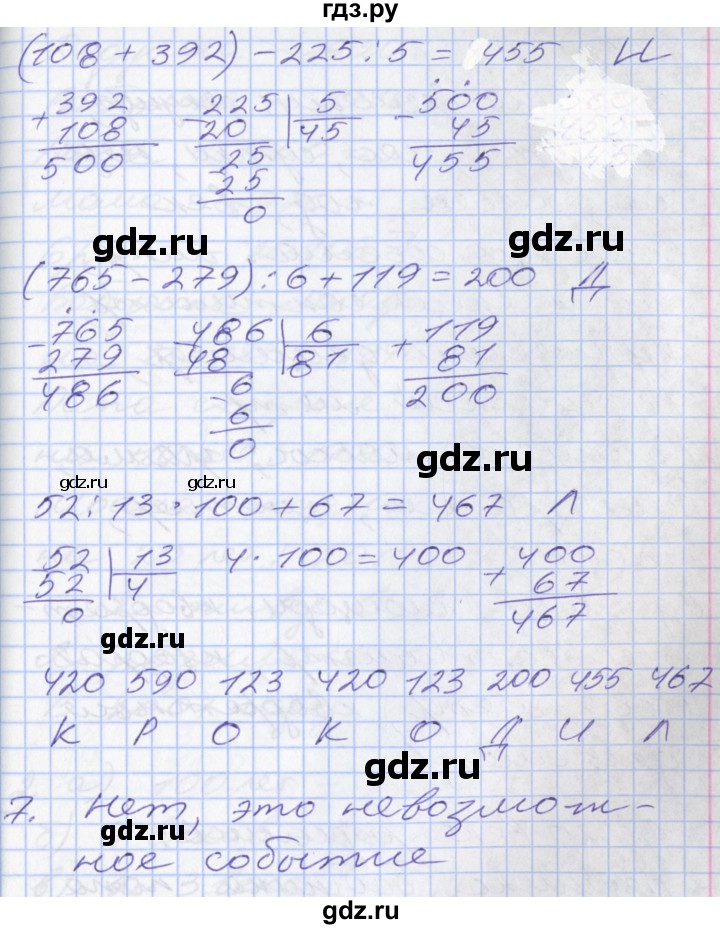 гдз.ру
(108 + 392) - 225 : 5 = 455 И
+ 392 - 225 | 5 - 500
108 20 45 45
500 25 455
- 25
0
gdz.ru gdz.ru
(765 - 279) : 6 + 119 = 200 Д
- 765 486 | 6 + 119
279 48 81 81
486 6 200
- 6
0
gdz.ru
gdz.ru gdz.ru
52 : 13 · 100 + 67 = 467 Л
52 | 13 4 · 100 = 400 + 400
52 4 67
0 467
gdz.ru
420 590 123 420 123 200 455 467
К Р О К О Д И Л
gdz.ru
7. Нет, это невозмож-
gdz.ru
ное событие
gdz.ru